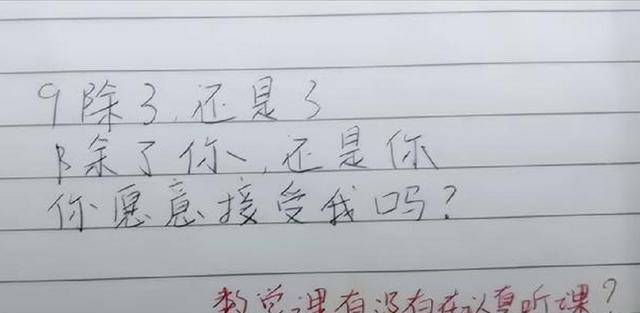 9除3,还是3
除了你,还是你
你愿意接受我吗?
数学课有没有在认真听课?